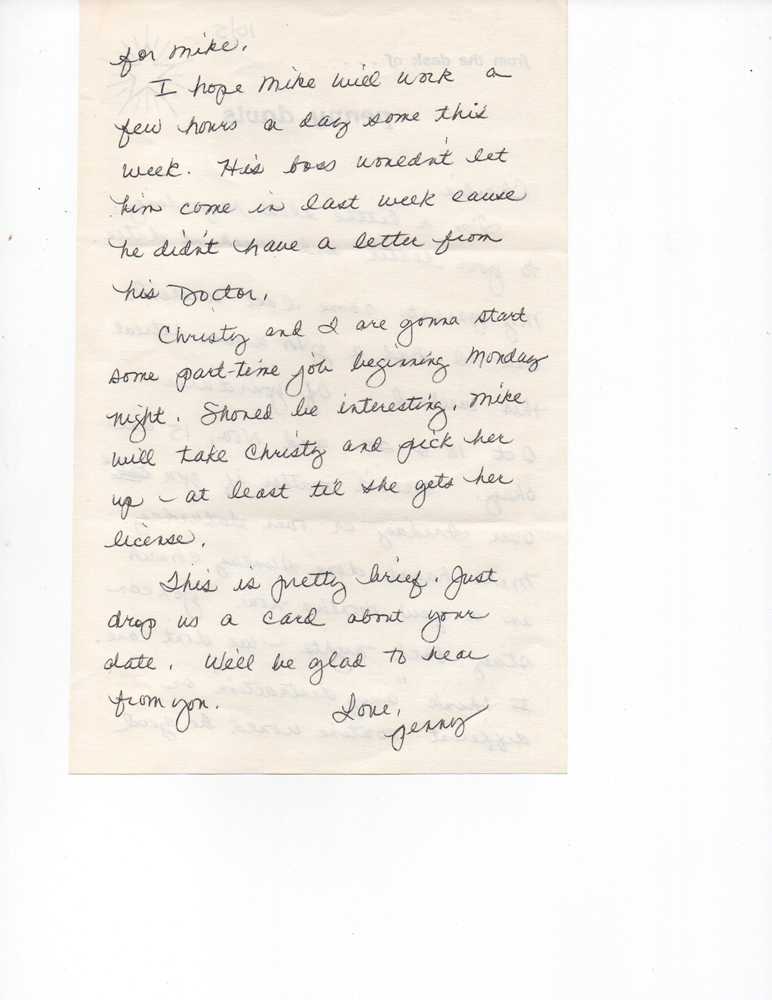 for Mike.
I hope Mike will work a
few hours a day some this
week. His boss wouldn't let
him come in last week cause
he didn't have a letter from
his Doctor.
Christy and I are gonna start
some part-time job beginning Monday
night. Should be interesting. Mike
will take Christy and pick her
up - at least til she gets her
license.
This is pretty brief. Just
drop us a card about your
date. We'll be glad to hear
from you.
Love,
Penny